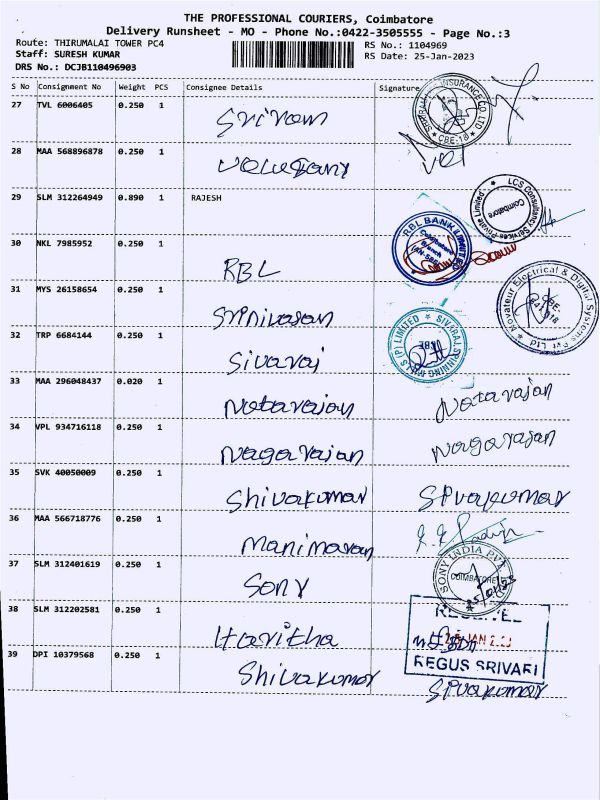 THE PROFESSIONAL COURIERS, Coimbatore
Delivery Runsheet - MO - Phone No.:0422-3505555 - Page No.:3
Route: THIRUMALAI TOWER PC4 RS No.: 1104969
Staff: SURESH KUMAR RS Date: 25-Jan-2023
DRS No.: DCJB110496903
S No Consignment No Weight PCS Consignee Details Signature
27 TVL 6006405 0.250 1
Sriram
SHRIRAM INSURANCE CO. LTD
CBE-18
28 MAA 568896878 0.250 1
Velusamy Vel
29 SLM 312264949 0.890 1 RAJESH
LCS Consultancy Services Private Limited
Coimbatore
30 NKL 7985952 0.250 1
RBL
RBL BANK LIMITED
Coimbatore
Branch
31 MYS 26158654 0.250 1
Srinivasan
Novateur Electrical & Digital Systems Pvt Ltd
CBE-
641 018
32 TRP 6684144 0.250 1
Sivaraj
SIVARAJ SPINNING MILLS (P) LIMITED
CBE
33 MAA 296048437 0.020 1
Natarajan Natarajan
34 VPL 934716118 0.250 1
Nagarajan Nagarajan
35 SVK 40050009 0.250 1
Shivakumar Sivakumar
36 MAA 566718776 0.250 1
Manimaran
37 SLM 312401619 0.250 1
Sony
SONY INDIA PVT.
COIMBATORE
38 SLM 312202581 0.250 1
Haritha
RECEIVED
25 JAN 2023
REGUS SRIVARI
39 DPI 10379568 0.250 1
Shivakumar Sivakumar